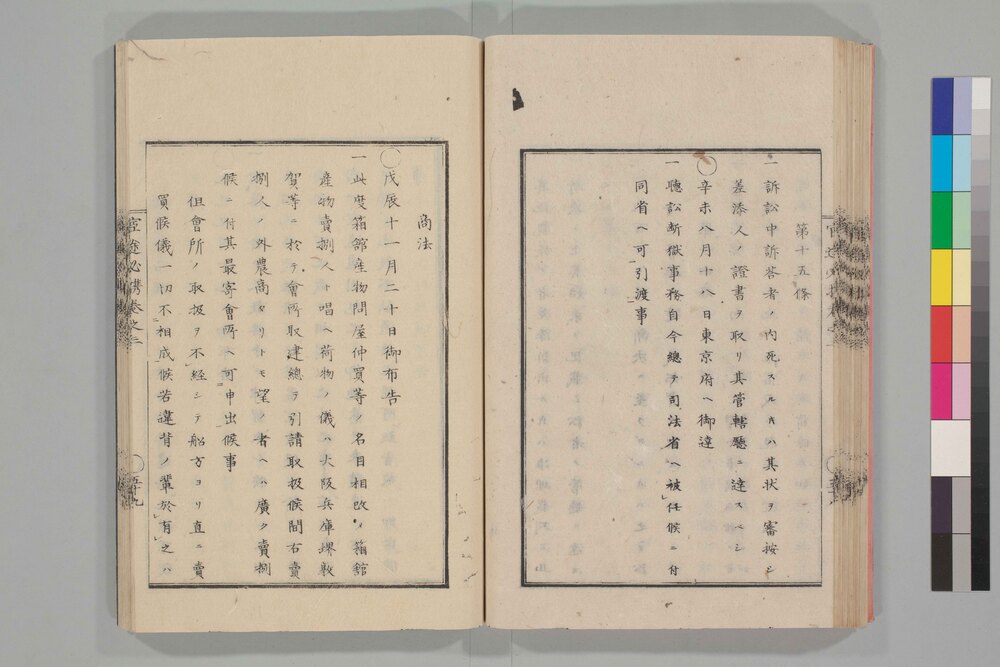 第十五條
一訴訟中訴答者ノ内死スル𪜈ハ其狀ヲ審按シ
差添人ノ證書ヲ取リ其管轄廳ニ達スベシ
辛未八月十八日東京府ヘ御達
一聽訟斷獄事務自今總テ司法省ヘ被任候ニ付
同省ヘ可引渡事
商法
戊辰十一月二十日御布告
一此度箱館産物問屋仲買等ノ名目相改メ箱館
産物賣捌人ト唱ヘ荷物ノ儀ハ大阪兵庫堺敦
賀等ニ於テ會所取建總テ引請取扱候間右賣
捌人ノ外農商タリトモ望ノ者ヘハ廣ク賣捌
候ニ付其最寄會所ヘ可申出候事
但會所ノ取扱ヲ不經シテ船方ヨリ直ニ賣
買候儀一切不相成候若違背ノ輩於有之ハ
官途必携卷之二
五十九